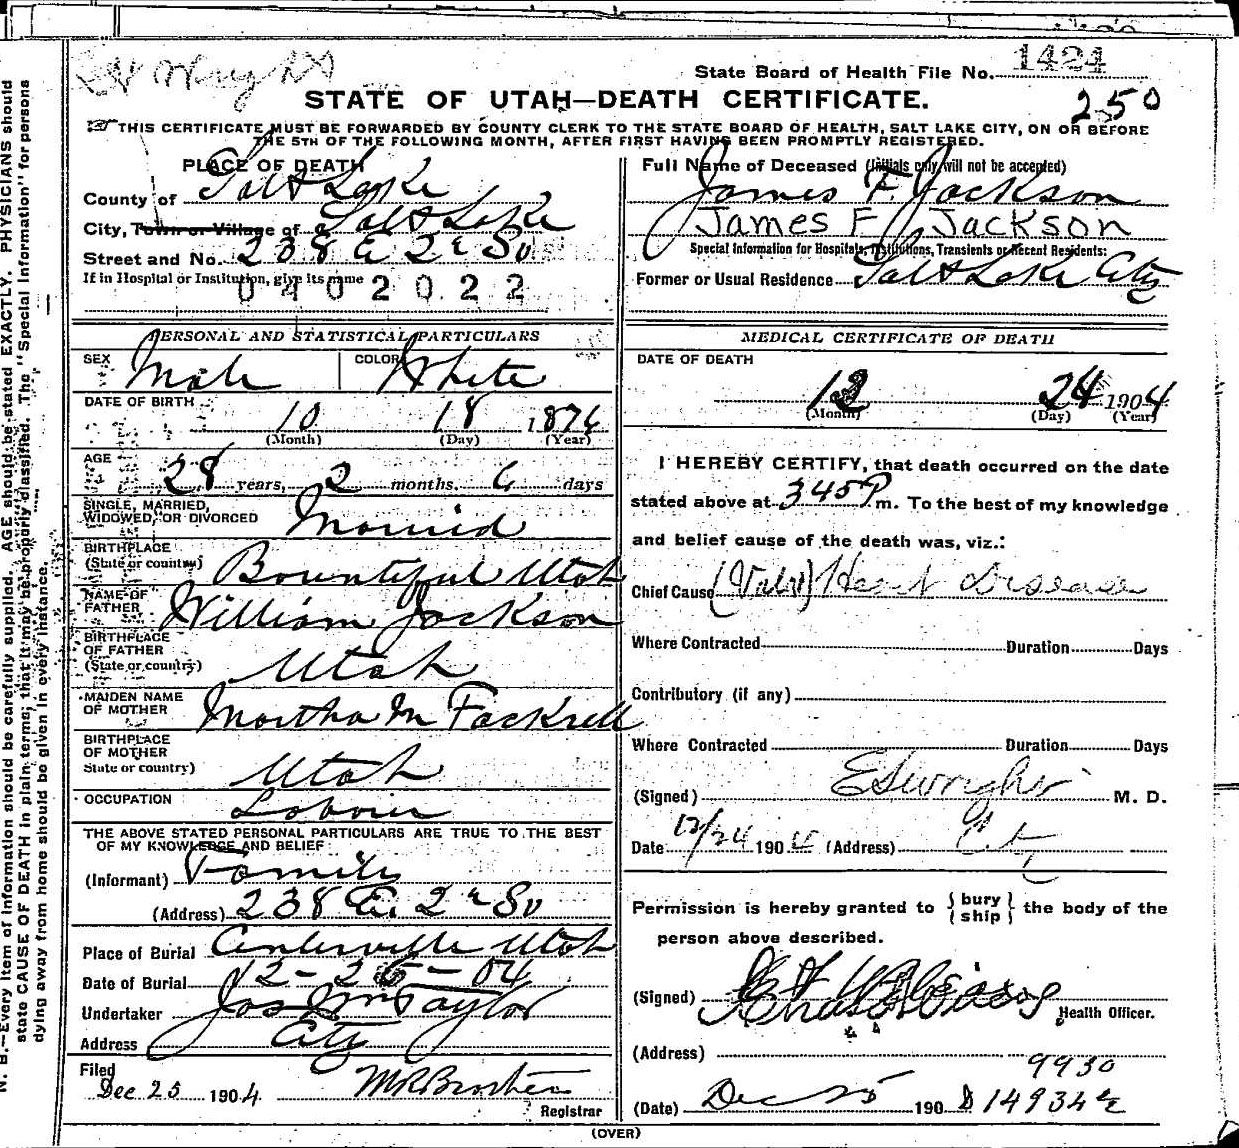 State Board of Health File No. 1424
STATE OF UTAH—DEATH CERTIFICATE.
250
THIS CERTIFICATE MUST BE FORWARDED BY COUNTY CLERK TO THE STATE BOARD OF HEALTH, SALT LAKE CITY, ON OR BEFORE
THE 5TH OF THE FOLLOWING MONTH, AFTER FIRST HAVING BEEN PROMPTLY REGISTERED.
PLACE OF DEATH
County of Salt Lake
City, Town or Village of Salt Lake
Street and No. 238 E 2d So
If in Hospital or Institution, give its name
0402022
Full Name of Deceased (Initials only will not be accepted)
James F. Jackson
James F Jackson
Special Information for Hospitals, Institutions, Transients or Recent Residents:
Former or Usual Residence Salt Lake City
PERSONAL AND STATISTICAL PARTICULARS
SEX Male COLOR White
DATE OF BIRTH
10 18 1876
(Month) (Day) (Year)
AGE
28 years, 2 months, 6 days
SINGLE, MARRIED,
WIDOWED, OR DIVORCED Married
BIRTHPLACE
(State or country) Bountiful Utah
NAME OF
FATHER William Jackson
BIRTHPLACE
OF FATHER
(State or country) Utah
MAIDEN NAME
OF MOTHER Martha M Fackrell
BIRTHPLACE
OF MOTHER
State or country) Utah
OCCUPATION Laborer
THE ABOVE STATED PERSONAL PARTICULARS ARE TRUE TO THE BEST
OF MY KNOWLEDGE AND BELIEF
(Informant) Family
(Address) 238 E. 2d So
Place of Burial Centerville Utah
Date of Burial 12-26-04
Undertaker Jos Wm Taylor
Address City
Filed
Dec 25 1904
Registrar
MEDICAL CERTIFICATE OF DEATH
DATE OF DEATH
12 24 1904
(Month) (Day) (Year)
I HEREBY CERTIFY, that death occurred on the date
stated above at 345 P m. To the best of my knowledge
and belief cause of the death was, viz.:
Chief Cause (Valv) Heart Disease
Where Contracted Duration Days
Contributory (if any)
Where Contracted Duration Days
(Signed) E S Wright M. D.
Date 12/24 1904 (Address) City
Permission is hereby granted to { bury ship } the body of the
person above described.
(Signed) Health Officer.
(Address)
9930
(Date) Dec 25 190 149342
(OVER)
N. B.—Every item of information should be carefully supplied. AGE should be stated EXACTLY. PHYSICIANS should
state CAUSE OF DEATH in plain terms, that it may be properly classified. The "Special Information" for persons
dying away from home should be given in every instance.